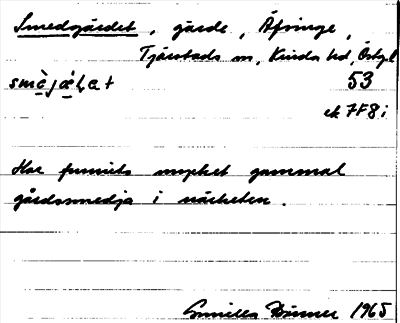 Smedgärdet, gärde, Åfsinge,
Tjärstads sn, Kinda hd, Östgl
53
ek 7F8i
Har funnits mycket gammal
gårdssmedja i närheten.
Gunilla 1965